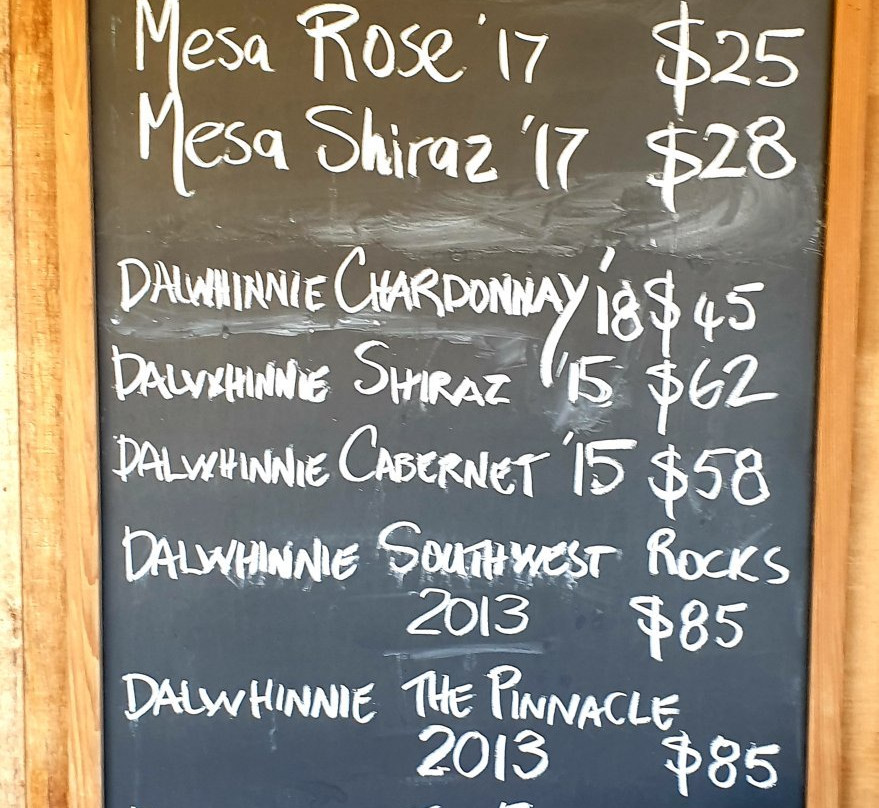 Mesa Rose '17 $25
Mesa Shiraz '17 $28
DALWHINNIE CHARDONNAY '18 $45
DALWHINNIE SHIRAZ '15 $62
DALWHINNIE CABERNET '15 $58
DALWHINNIE SOUTHWEST ROCKS
2013 $85
DALWHINNIE THE PINNACLE
2013 $85